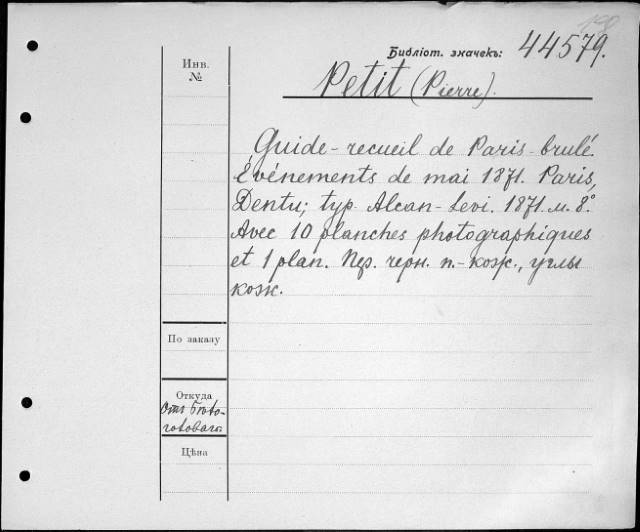 Библіот. значекъ: 44579.
Инв.
№
Petit (Pierre).
Guide-recueil de Paris-brulé.
Événements de mai 1871. Paris,
Dentu; typ. Alcan-Levi. 1871. м. 8°.
Avec 10 planches photographiques
et 1 plan. Пер. черн. п.-кож., углы
кож.
По заказу
Откуда
Отъ
Цѣна